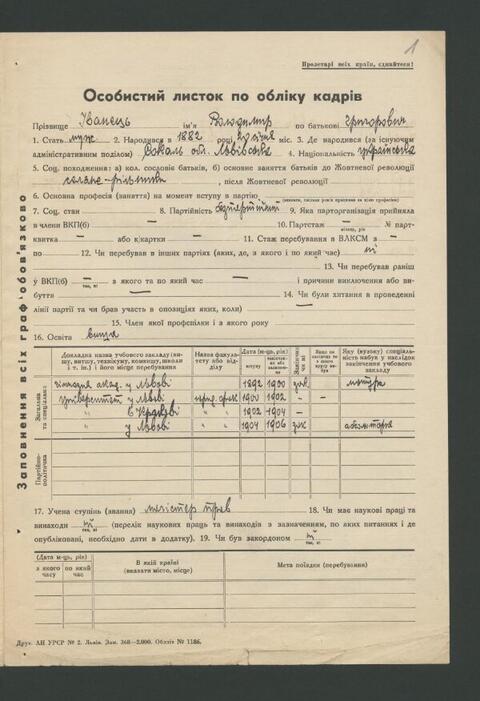 1
Пролетарі всіх країн, єднайтеся!
Особистий листок по обліку кадрів
Прізвище Іванець ім'я Володимир по батькові Григорович
1. Стать муж 2. Народився в 1882 році січня міс. 3. Де народився (за існуючим
адміністративним поділом) Сокаль обл. Львівська 4. Національність українська
5. Соц. походження: а) кол. сословіє батьків, б) основне заняття батьків до Жовтневої революції
селяне-рільники, після Жовтневої революції
6. Основна професія (заняття) на момент вступу в партію
7. Соц. стан 8. Партійність безпартійний 9. Яка парторганізація прийняла
в члени ВКП(б) — 10. Партстаж — № парт-
міс., рік
квитка — або к/картки — 11. Стаж перебування в ВЛКСМ з —
по — 12. Чи перебував в інших партіях (яких, де, з якого і по який час) ні
13. Чи перебував раніш
у ВКП(б) — з якого та по який час — і причини виключення або ви-
так, ні
буття — 14. Чи були хитання в проведенні
лінії партії та чи брав участь в опозиціях яких, коли)
15. Член якої профспілки і з якого року
16. Освіта вища
Докладна назва учбового закладу (вищу, вищу, технікуму, комвишу, школи і т. ін.) і його місце перебування
Назва факультету або відділу
Дата (м-ць, рік)
вступу
закінчення або вибуття
Закінчив чи ні
Яку (вузову) спеціальність набув у наслідок закінчення учбового закладу
Загальна та спеціальна
гімназія акад. у Львові 1892 1900 зак матура
Університет у Львові юрид. фак 1900 1902 —
" в Кракові " " 1902 1904 —
" у Львові " " 1904 1906 зак
Партійно-політична
17. Учена ступінь (звання) магістер прав 18. Чи має наукові праці та
винаходи ні (перелік наукових праць та винаходів з зазначенням, по яких питаннях і де
так, ні
опубліковані, необхідно дати в додатку). 19. Чи був закордоном ні
так, ні
(Дата м-ць, рік)
з якого часу
по який час
В якій країні (вказати місто, місце)
Мета поїздки (перебування)
Друк. АН УРСР № 2. Львів. Зам. 368—2.000. Обліліт № 1186.
Заповнення всіх граф обов'язково